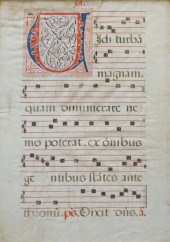 Vidi turbā
magnam,
quam dinumerare ne
mo poterat, ex ōnibus
ge ntibus stātes ante
thronū. ps. Dixit dn̄s. a.